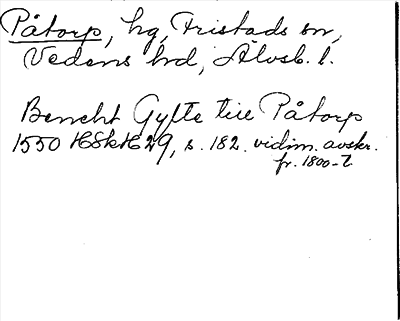 Påtorp, hg, Fristads sn,
Vedens hd, Älvsb. l.
Bencht Gyfte till Påtorp
1550 HSkH 29, s. 182. vidim. avskr.
fr. 1800-t